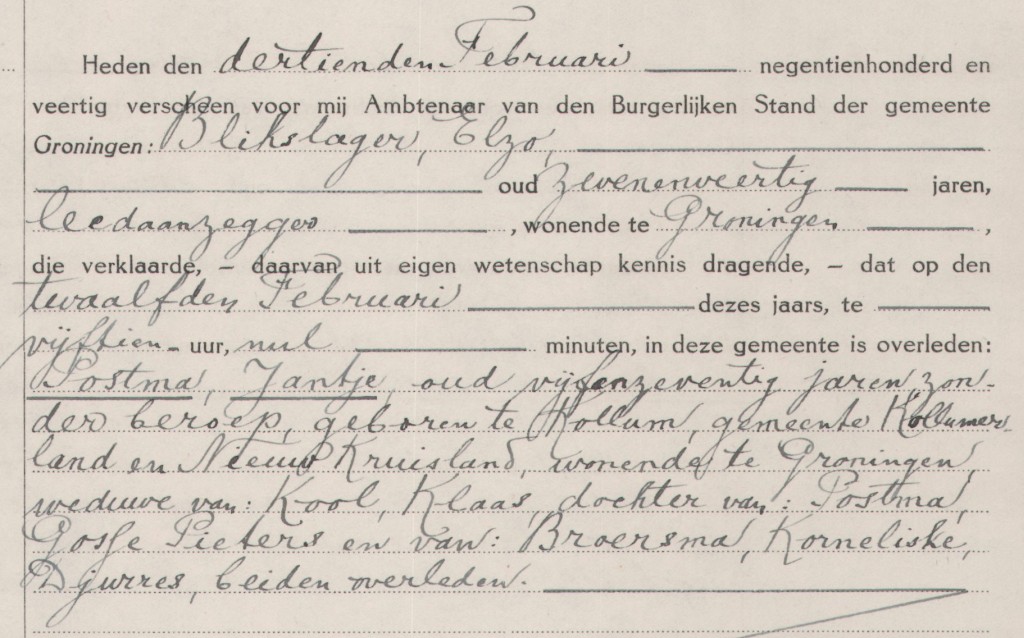 Heden den dertienden Februari negentienhonderd en
veertig verscheen voor mij Ambtenaar van den Burgerlijken Stand der gemeente
Groningen: Blikslager, Elzo,
oud zevenenveertig jaren,
leedaanzegger, wonende te Groningen,
die verklaarde, – daarvan uit eigen wetenschap kennis dragende, – dat op den
twaalfden Februari dezes jaars, te
vijftien uur, nul minuten, in deze gemeente is overleden:
Postma, Jantje, oud vijfenzeventig jaren, zon-
der beroep, geboren te Kollum, gemeente Kollumer-
land en Nieuw Kruisland, wonende te Groningen,
weduwe van: Kool, Klaas, dochter van: Postma,
Gosse Pieters en van: Broersma, Korneliske,
Djurres, beiden overleden.